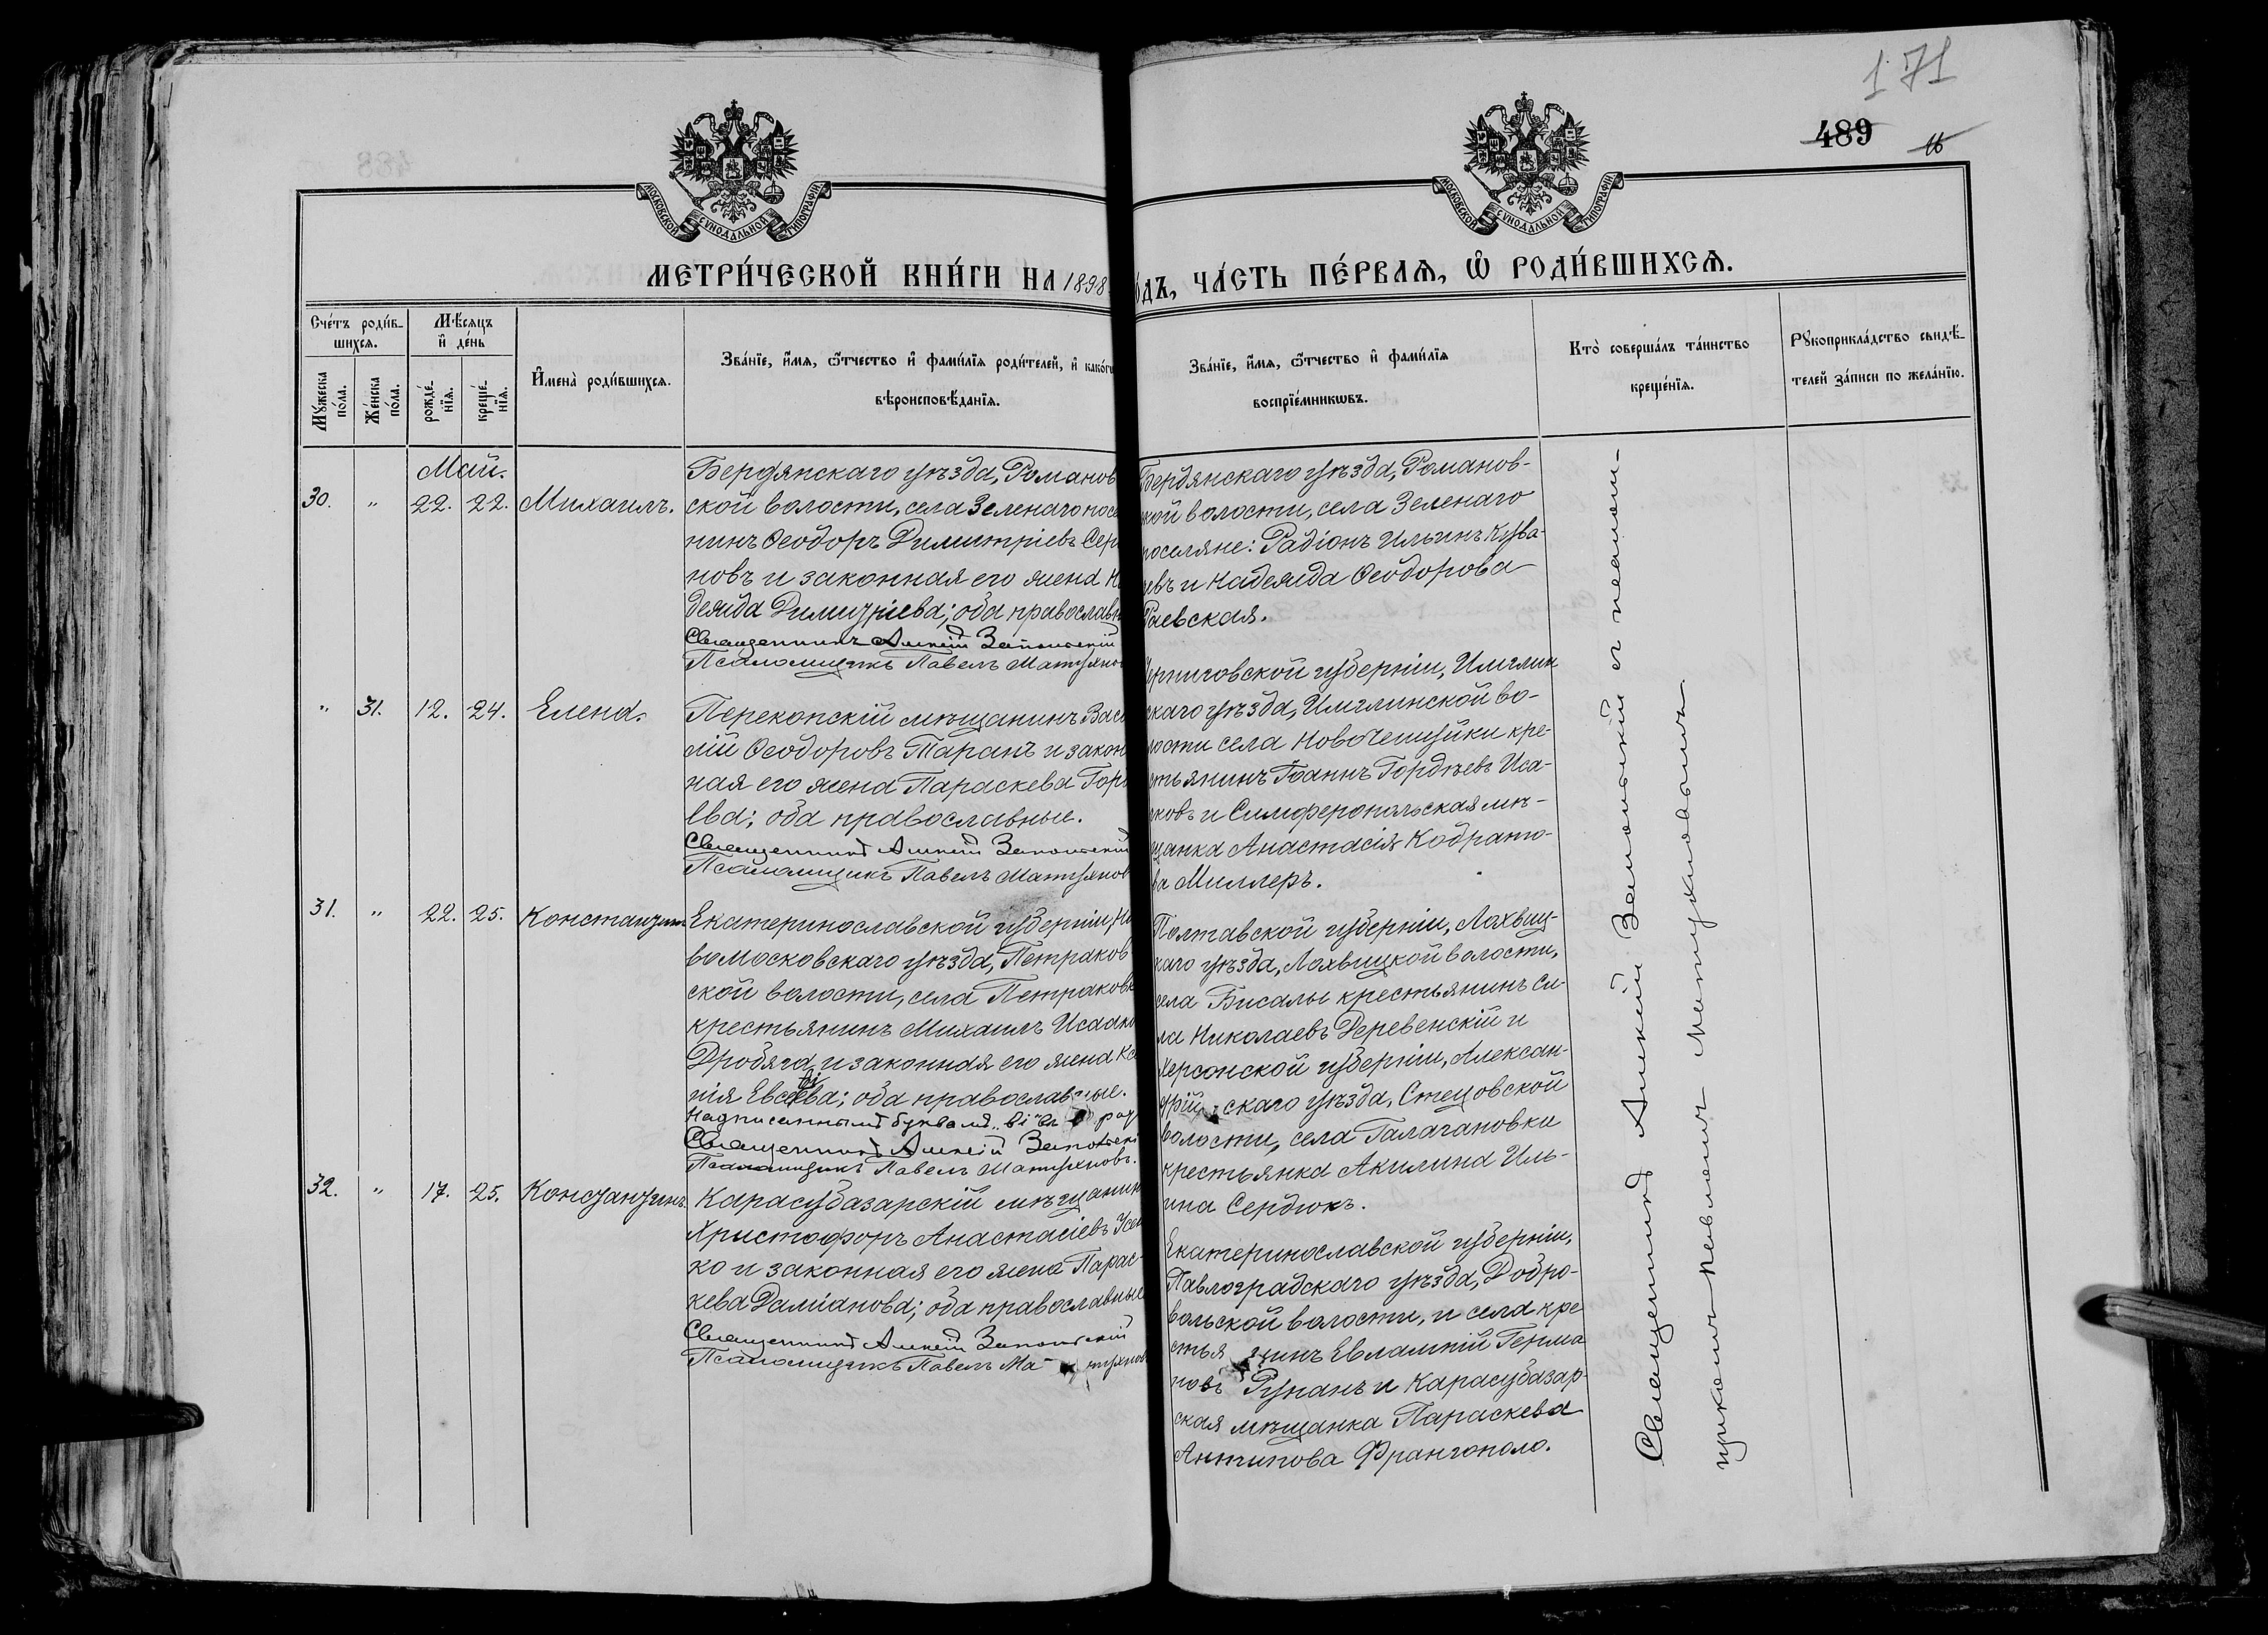 171
489
МОСКОВСКОЙ СѴНОДАЛЬНОЙ ТИПОГРАФІИ
МОСКОВСКОЙ СѴНОДАЛЬНОЙ ТИПОГРАФІИ
МЕТРИ́ЧЕСКОЙ КНИ́ГИ НА 1898
О́ДЪ, ЧА́СТЬ ПЕ́РВАѦ, Ѡ҆ РОДИ́ВШИХСѦ.
Сче́тъ роди́в-
шихсѧ.
Мꙋ́жеска
по́ла.
Же́нска
по́ла.
Мѣ́сѧцъ
и҆ де́нь
рожде́-
нїѧ.
креще́-
нїѧ.
И҆мена̀ роди́вшихсѧ.
Зва́нїе, и҆́мѧ, ѻ҆́тчество и҆ фами́лїѧ роди́телей, и҆ како́гѡ
вѣроисповѣ́данїѧ.
Зва́нїе, и҆́мѧ, ѻ҆́тчество и҆ фами́лїѧ
воспрїе́мникѡвъ.
Кто̀ соверша́лъ та́инство
креще́нїѧ.
Рꙋкоприкла́дство свидѣ́-
телей за́писи по жела́нїю.
Май.
30. " 22. 22. Михаилъ.
Бердянскаго уѣзда, Романов
ской волости, села Зеленаго посе
нинъ Ѳеодоръ Димитріевъ Сер
новъ и законная его жена На
дежда Димитріева; оба православн
Священникъ Алексій Запольскій
Псаломщикъ Павелъ Матухнов
Бердянскаго уѣзда, Романов-
ской волости, села Зеленаго
поселяне: Радіонъ Ильинъ Кува-
евъ и Надежда Ѳеодорова
Раевская.
" 31. 12. 24. Елена.
Перекопскій мѣщанинъ Васи
лій Ѳеодоровъ Таранъ и закон
ная его жена Параскева Горд
ева; оба православные.
Священникъ Алексій Запольскій
Псаломщикъ Павелъ Матухнов
Черниговской губерніи, Имглин
скаго уѣзда, Имглинской во-
лости села Новочешуйки кре-
стьянинъ Іоаннъ Гордѣевъ Иса-
ковъ и Симферопольская мѣ-
щанка Анастасія Кодрато-
ва Миллеръ.
31. " 22. 25. Константинъ
Екатеринославской губерніи, Но
вомосковскаго уѣзда, Петраков
ской волости, села Петраковк
крестьянинъ Михаилъ Исаако
Дробяга и законная его жена Ксе
нія Евсевіева; оба православные.
Надписаннымъ буквамъ „ві" вѣ
Священникъ Алексій Запольскі
Псаломщикъ Павелъ Матухновъ.
Полтавской губерніи, Лохвиц-
каго уѣзда, Лохвицкой волости,
села Бисалы крестьянинъ Си-
ла Николаевъ Деревенскій и
Херсонской губерніи, Алексан-
дрійскаго уѣзда, Стецовской
волости, села Галагановки
крестьянка Акилина Иль-
ина Сердюкъ.
32. " 17. 25. Константинъ.
Карасубазарскій мѣщанин
Христофоръ Анастасіевъ Усен
ко и законная его жена Парас-
кева Даміанова; оба православные
Священникъ Алексій Запольскій
Псаломщикъ Павелъ Матухнов
Екатеринославской губерніи,
Павлоградскаго уѣзда, Добро-
вольской волости, и села кре
стьянинъ Евлампій Герма
новъ Рупанъ и Карасубазар-
ская мѣщанка Параскева
Антипова Франгополо.
Священникъ Алексій Запольскій съ псалом-
щикомъ Павломъ Матухновымъ